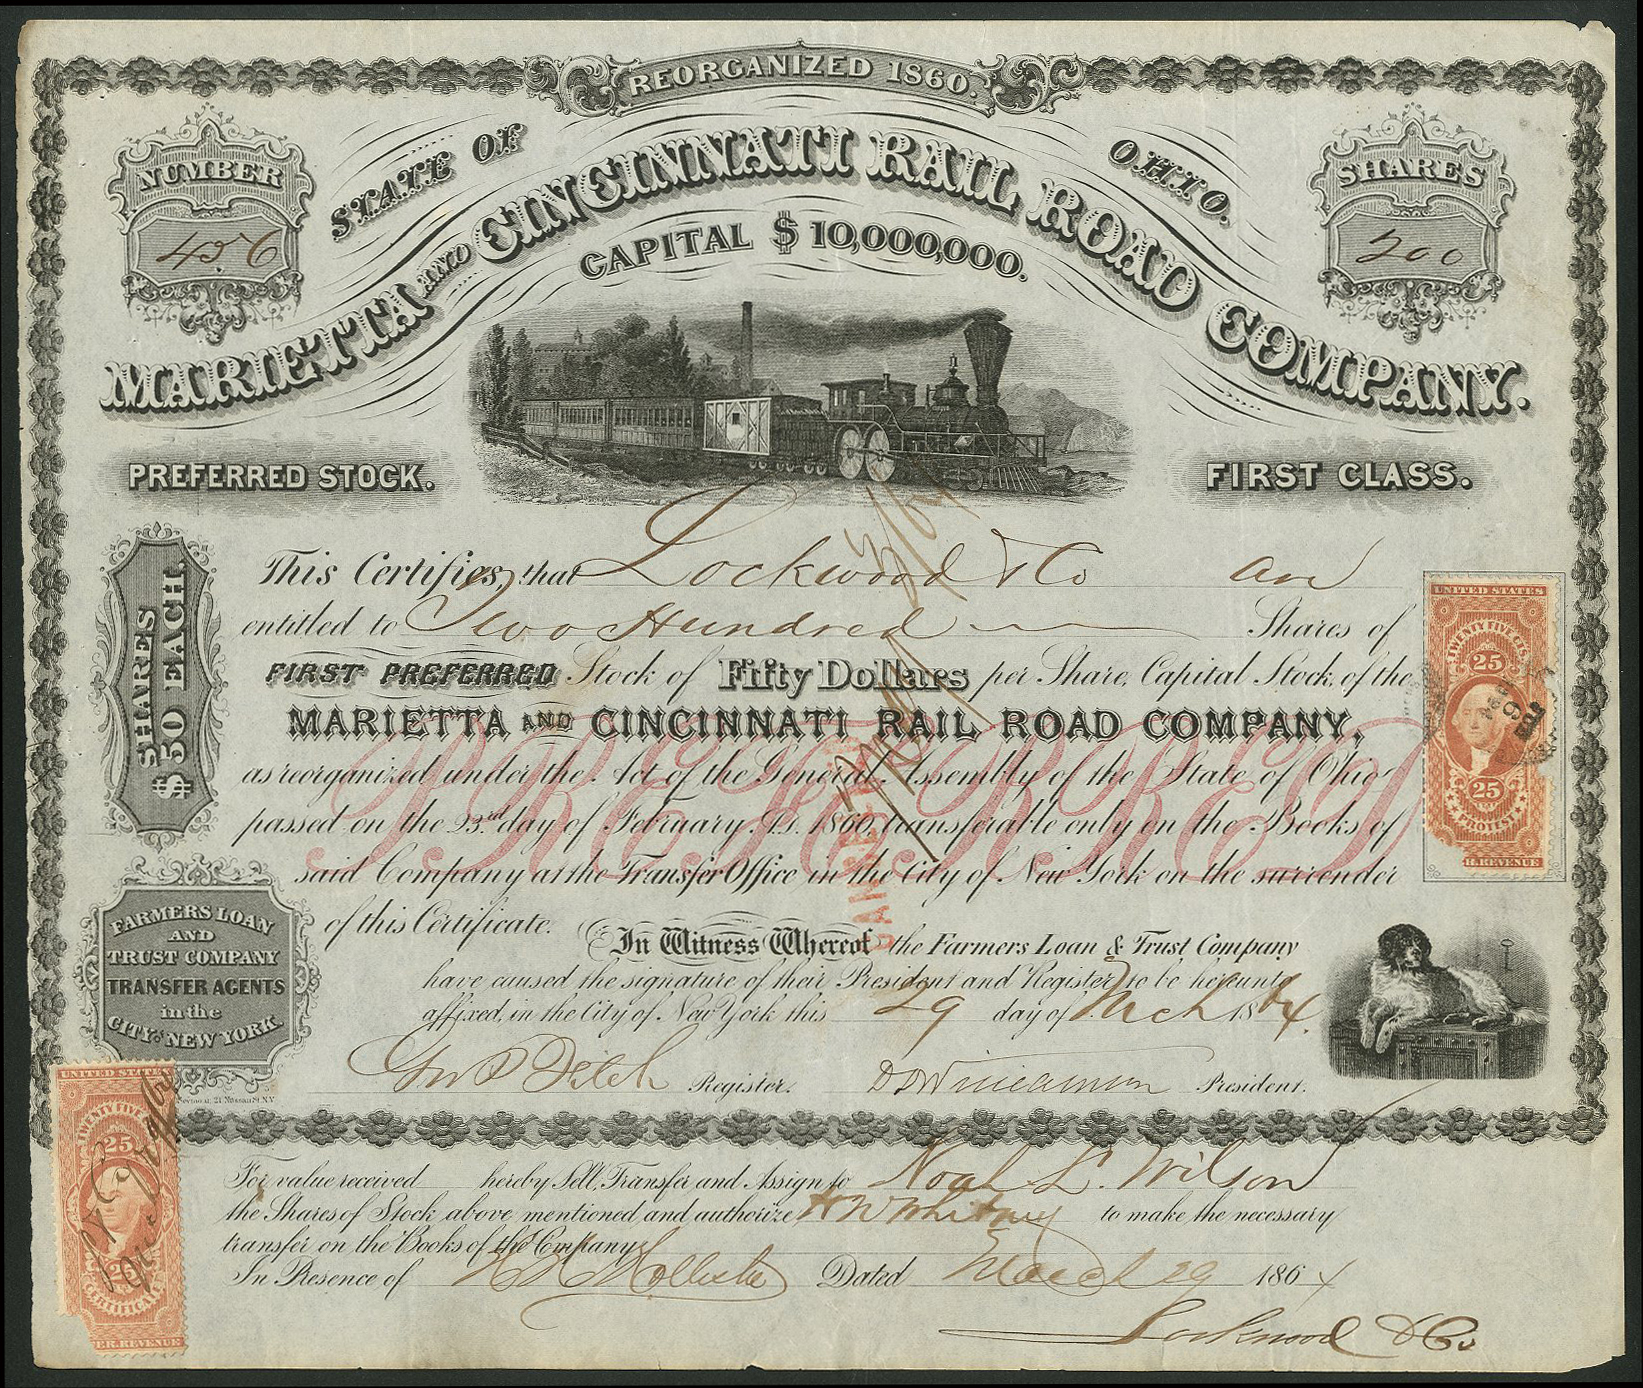 REORGANIZED 1860.
NUMBER
456
STATE OF OHIO.
SHARES
200
MARIETTA AND CINCINNATI RAIL ROAD COMPANY.
CAPITAL $10,000,000.
PREFERRED STOCK.
FIRST CLASS.
SHARES $50 EACH.
This Certifies, that Lockwood & Co are
entitled to Two Hundred Shares of
FIRST PREFERRED Stock of Fifty Dollars per Share, Capital Stock, of the
MARIETTA AND CINCINNATI RAIL ROAD COMPANY,
as reorganized under the Act of the General Assembly of the State of Ohio
passed on the 23rd day of February A.D. 1860, transferable only on the Books of
said Company at the Transfer Office in the City of New York on the surrender
of this Certificate.
PREFERRED
CANCELLED
In Witness Whereof the Farmers Loan & Trust Company
have caused the signature of their President and Register to be hereunto
affixed, in the City of New York this 29 day of Mch 1864.
Register.
President.
FARMERS LOAN
AND
TRUST COMPANY
TRANSFER AGENTS
in the
CITY OF NEW YORK
UNITED STATES
TWENTY FIVE CTS
25
25
PROTEST
R. REVENUE
UNITED STATES
TWENTY FIVE CTS
25
25
CERTIFICATE
ER. REVENUE
For value received hereby Sell, Transfer and Assign to Noah L. Wilson
the Shares of Stock above mentioned and authorize H W Whitney to make the necessary
transfer on the Books of the Company
In Presence of Dated March 29 1864
Lockwood & Co